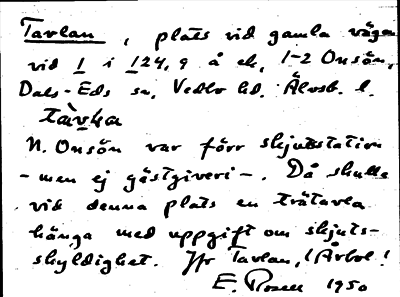 Tavlan, plats vid gamla vägen
vid 1 i 124,9 å ek, 1-2 Onsön,
Dals-Eds sn, Vedbo hd. Älvsb. l.
tàvḷa
N. Onsön var förr skjutsstation
- men ej gästgiveri -. Då skulle
vid denna plats en trätavla
hänga med uppgift om skjuts-
skyldighet. Jfr Tavlan, i Årbol!
E. Rosell 1950